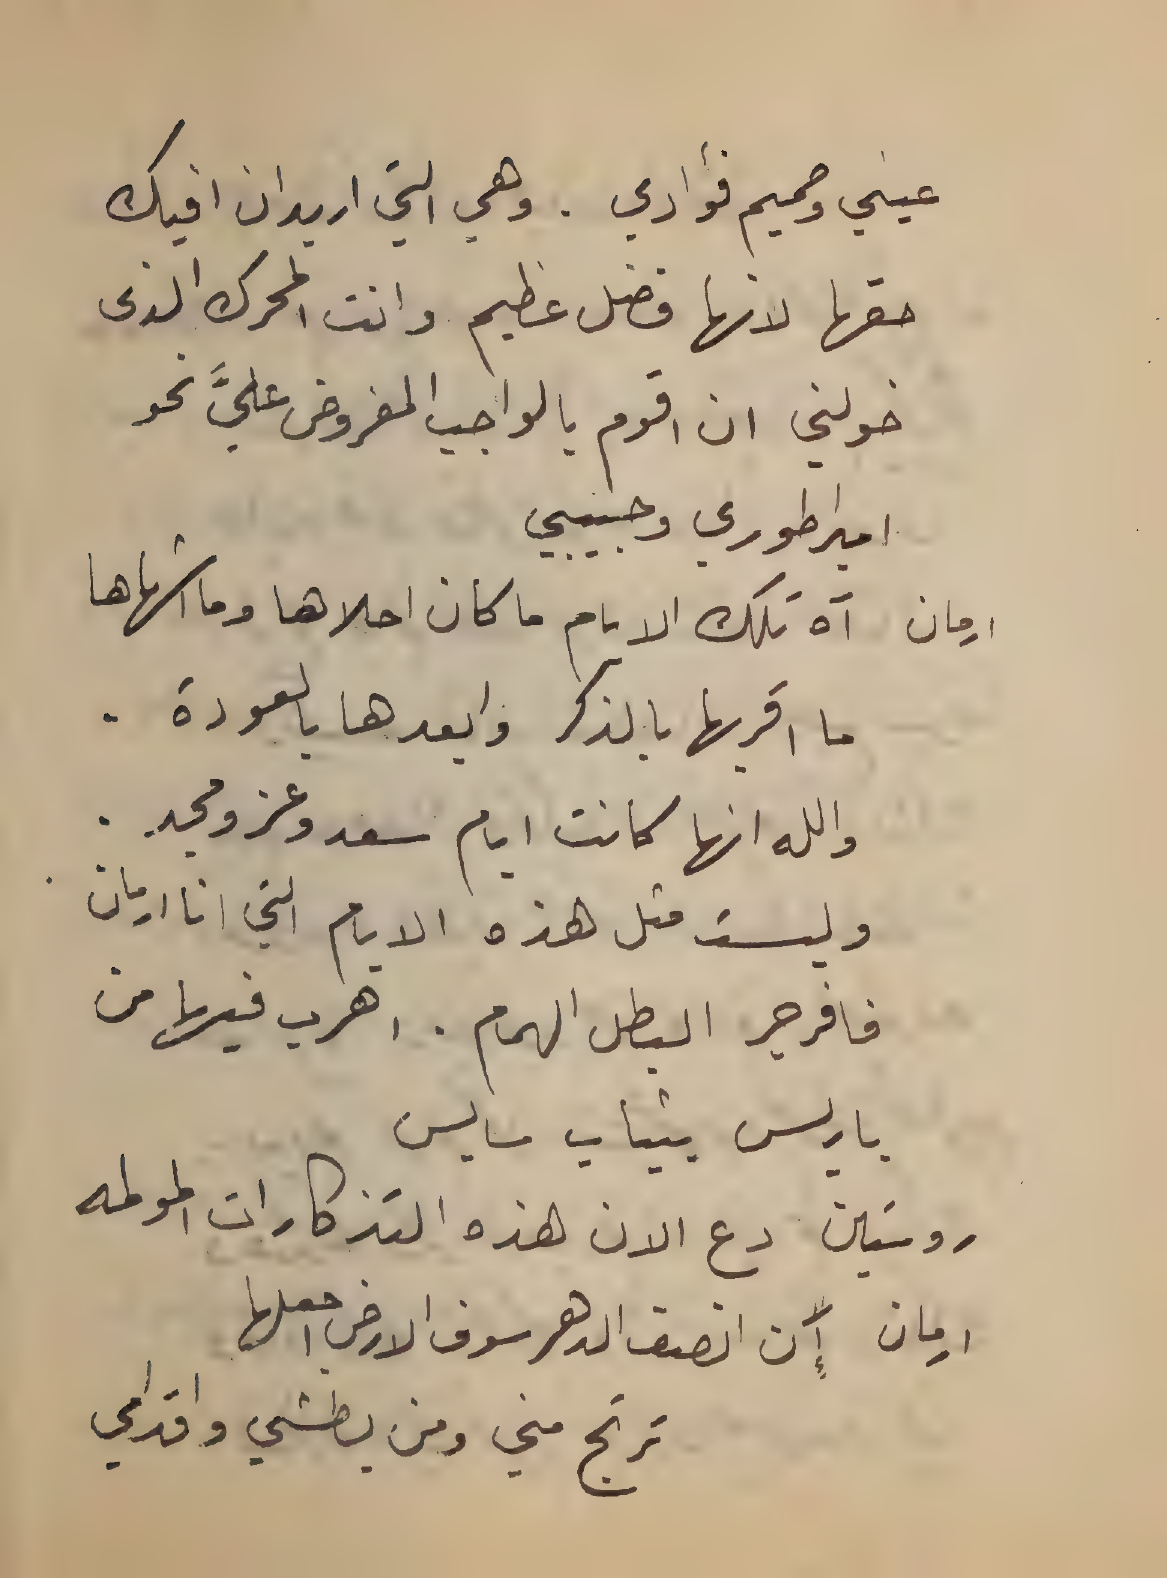 عيني وصميم فؤادي . وهي التي اريد ان افيك
حقها لانها فضل عظيم وانت المحرك الذى
خولني ان اقوم بالواجب المفروض عليَّ نحو
امبراطوري وحبيبي
ارمان آه تلك الايام ما كان احلاها وما اشهاها
ما اقربها بالذكر وابعدها بالعودة .
والله انها كانت ايام سعد وعز ومجد .
وليست مثل هذه الايام التي انا ارمان .
فافرجر البطل الهمام . اهرب فيها من
باريس بثياب سايس
روستين دع الان هذه التذكارات المولمه
ارمان إن انصف الدهر سوف الارض اجعلها
ترتج مني ومن بطشي واقدامي